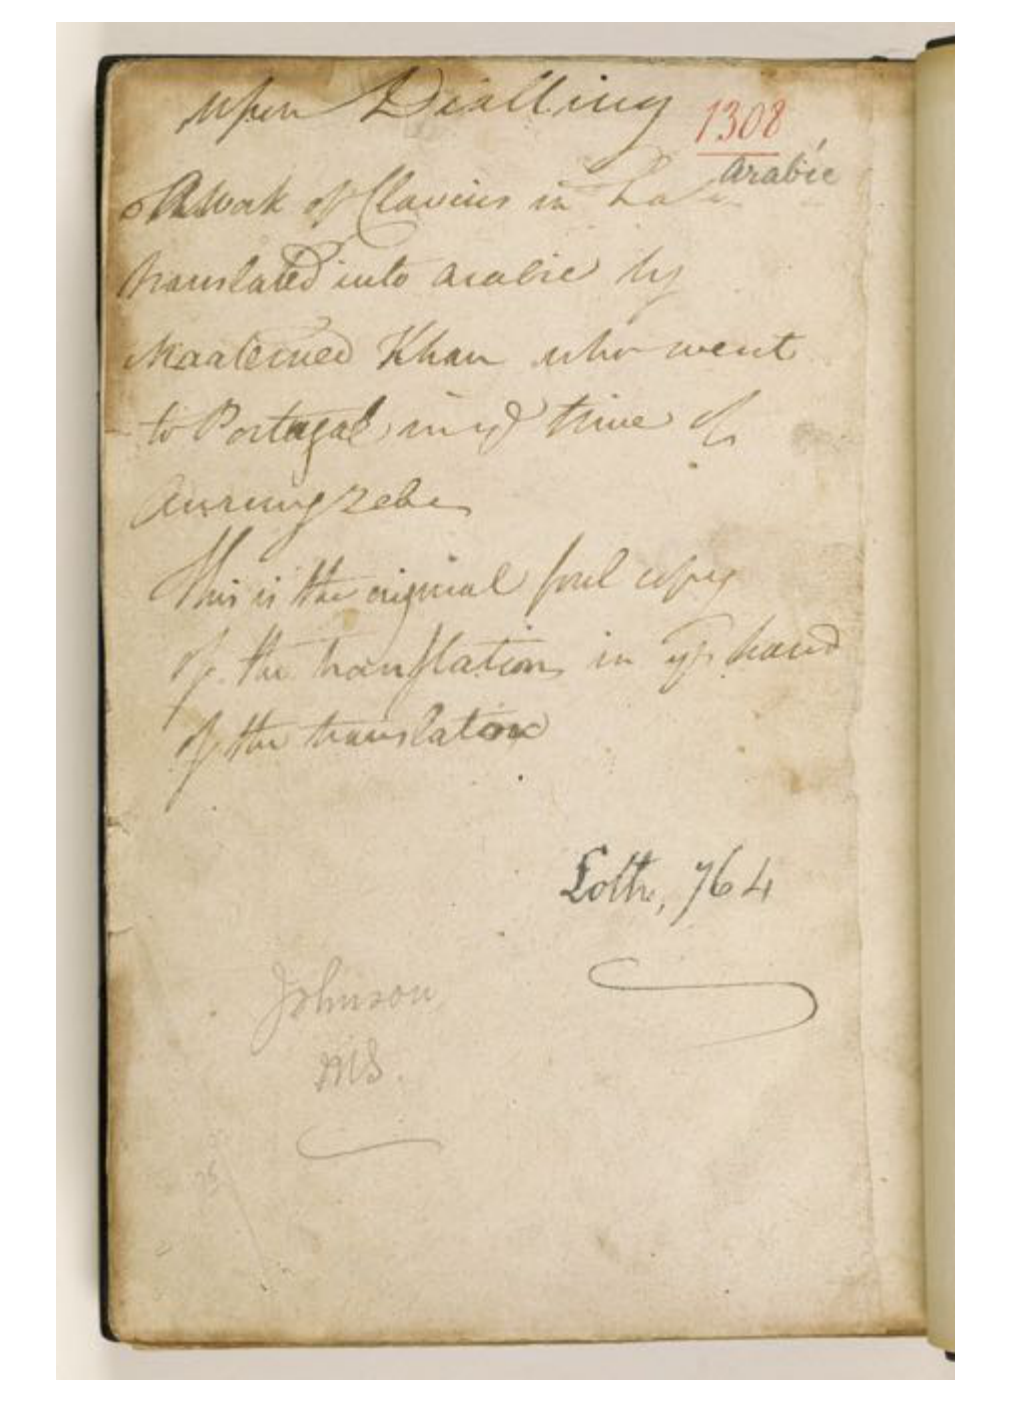 upon Dialling
1308
arabic
A Work of Clavius in
translated into arabic by
Khan who went
to Portugal in ye time of
Aurungzebe
This is the original foul copy
of the translation in ye hand
of the translator
Loth, 764
Johnson
MS.